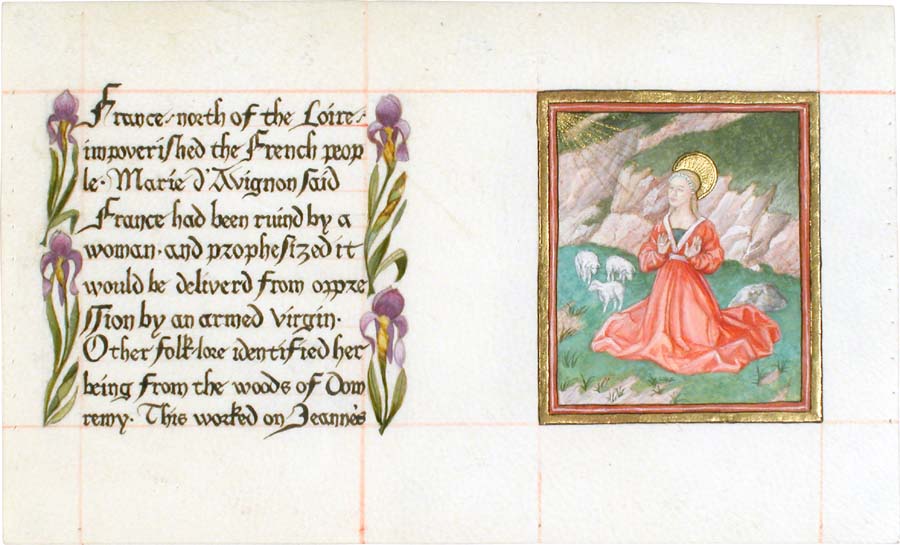 France·north of the Loire·
impoverished the French peop
le· Marie d'Avignon said
France had been ruind by a
woman·and prophesized it
would be deliverd from oppre
ssion by an armed virgin·
Other folk-lore identified her
being from the woods of Dom
remy· This worked on Jeanne's